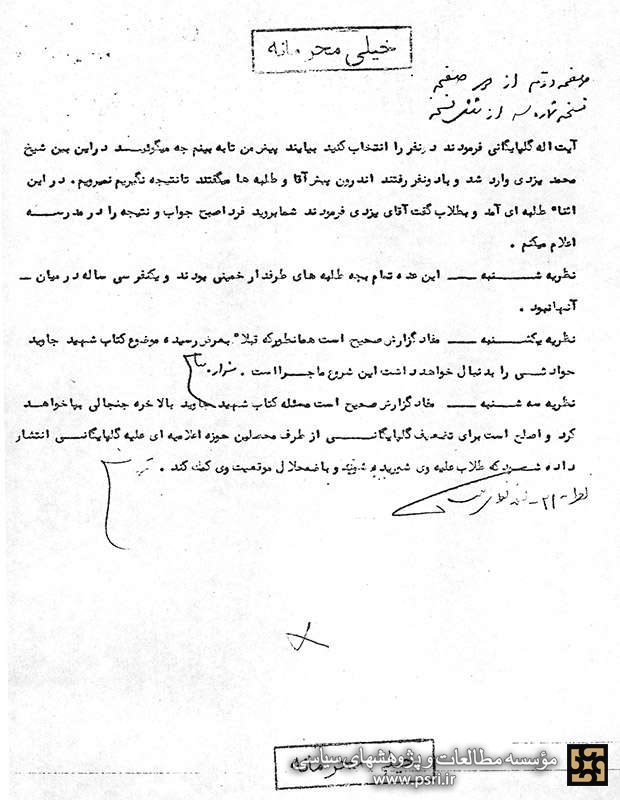 خیلی محرمانه
صفحه دوم از صفحه
نسخه شماره سه از نسخه
آیت اله گلپایگانی فرمودند دو نفر را انتخاب کنید بیایند پیش من تا به بینم چه میگوئید در این بین شیخ
محمد یزدی وارد شد و با دو نفر رفتند اندرون پیش آقا و طلبه ها میگفتند تا نتیجه نگیریم نمیرویم. در این
اثناء طلبه ای آمد و بطلاب گفت آقای یزدی فرمودند شما بروید فردا صبح جواب و نتیجه را در مدرسه
اعلام میکنم.
نظریه شنبه ــ این عده تمام بچه طلبه های طرفدار خمینی بودند و یکنفر سی ساله در میان ــ
آنها نبود.
نظریه یکشنبه ــ مفاد گزارش صحیح است همانطور که قبلا" بعرض رسیده موضوع کتاب شهید جاوید
حوادثی را بدنبال خواهد داشت این شروع ماجرا است.
نظریه سه شنبه ــ مفاد گزارش صحیح است مسئله کتاب شهید جاوید بالاخره جنجالی بپا خواهد
کرد و اصلح است برای تضعیف گلپایگانی از طرف محصلین حوزه اعلامیه ای علیه گلپایگانی انتشار
داده شود که طلاب علیه وی شوند و باضمحلال موقعیت وی کمک کند.
خیلی محرمانه
مؤسسه مطالعات و پژوهشهای سیاسی
www.psri.ir